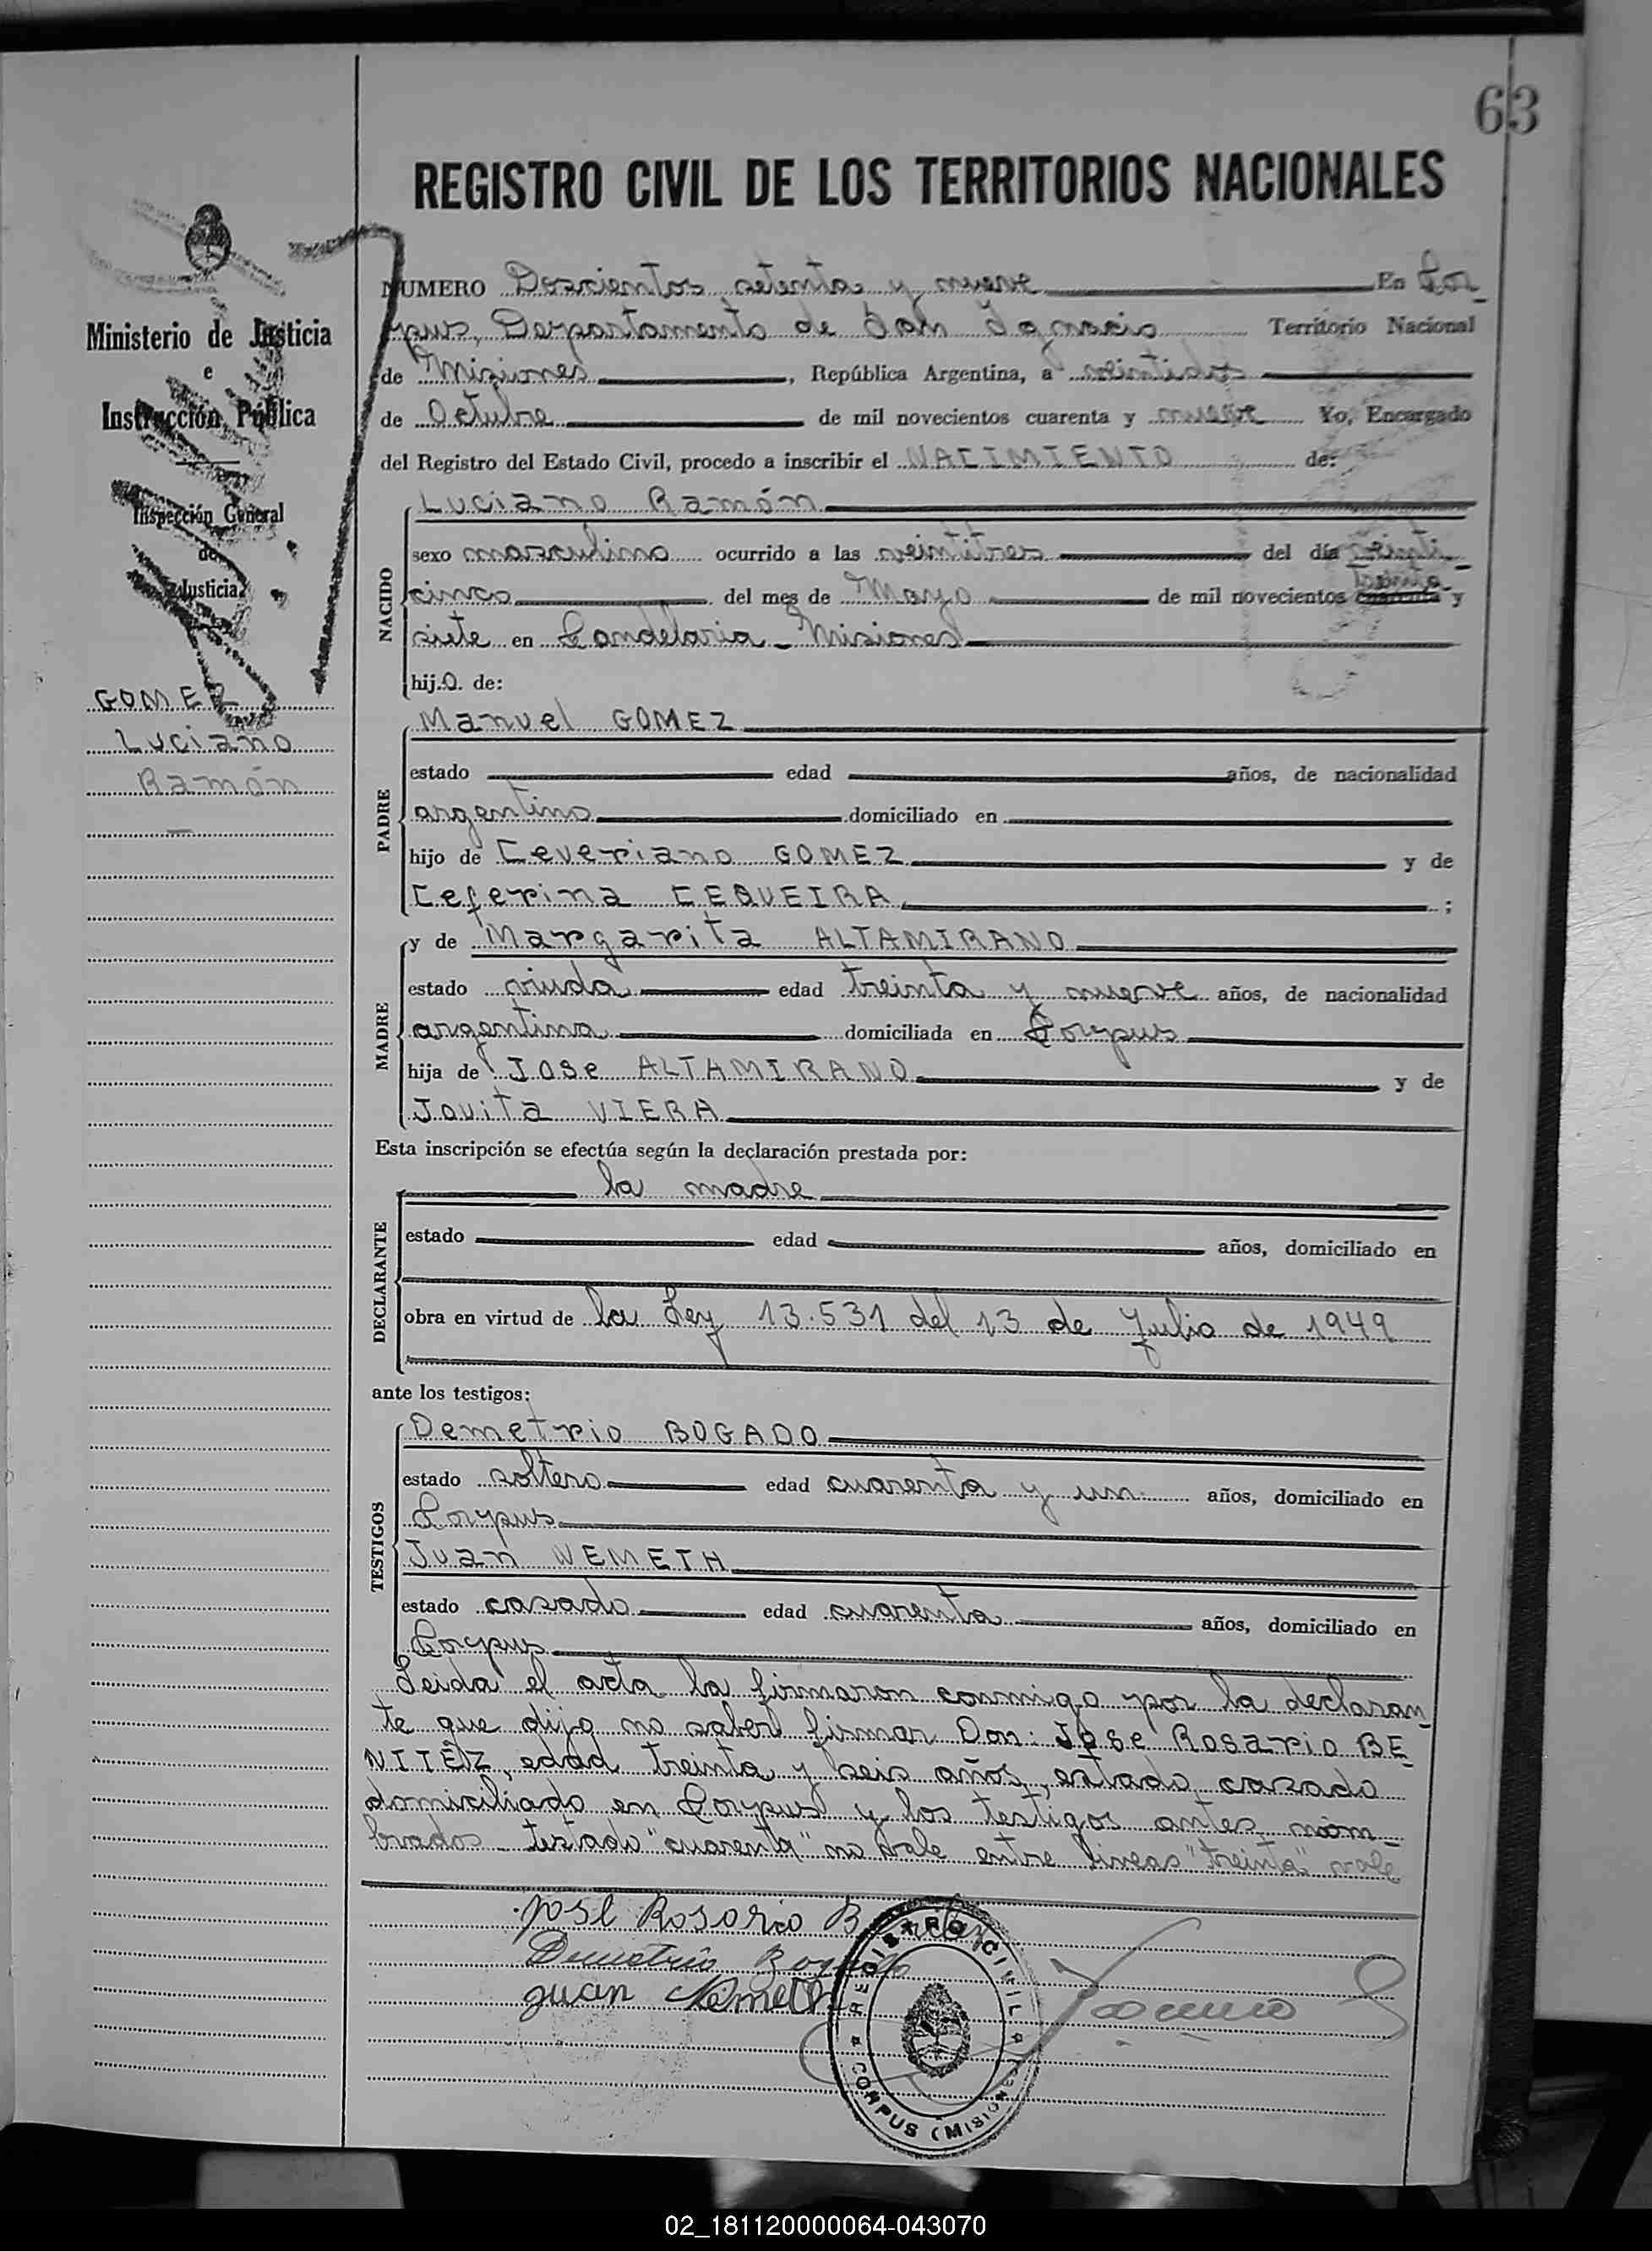 63
REGISTRO CIVIL DE LOS TERRITORIOS NACIONALES
Ministerio de Justicia
e
Instrucción Pública
Inspección General
de
Justicia
GOMEZ
Luciano
Ramón
NUMERO Doscientos setenta y nueve En Cor
pus, Departamento de San Ignacio Territorio Nacional
de Misiones, República Argentina, a veintidos
de Octubre de mil novecientos cuarenta y nueve Yo, Encargado
del Registro del Estado Civil, procedo a inscribir el NACIMIENTO de:
NACIDO
Luciano Ramón
sexo masculino ocurrido a las veintitres del día veinti
treinta
cinco del mes de Mayo de mil novecientos cuarenta y
siete en Candelaria - Misiones
hij.o. de:
PADRE
Manuel GOMEZ
estado edad años, de nacionalidad
argentino domiciliado en
hijo de Ceveriano GOMEZ y de
Ceferina CEQUEIRA ;
MADRE
y de Margarita ALTAMIRANO
estado viuda edad treinta y nueve años, de nacionalidad
argentina domiciliada en Corpus
hija de Jose ALTAMIRANO y de
Jovita VIERA
Esta inscripción se efectúa según la declaración prestada por:
DECLARANTE
la madre
estado edad años, domiciliado en
obra en virtud de la Ley 13.531 del 13 de Julio de 1949
ante los testigos:
TESTIGOS
Demetrio BOGADO
estado soltero edad cuarenta y un años, domiciliado en
Corpus
Juan NEMETH
estado casado edad cuarenta años, domiciliado en
Corpus
Leida el acta la firmaron conmigo por la declaran
te que dijo no saber firmar Don: Jose Rosario BE
NITEZ, edad treinta y seis años, estado casado
domiciliado en Corpus y los testigos antes nom-
brados - testado "cuarenta" no vale entre lineas "treinta" vale
Jose Rosario Benitez
Demetrio Bogado
Juan Nemeth
REGISTRO CIVIL
CORPUS (MISIONES)
02_181120000064-043070